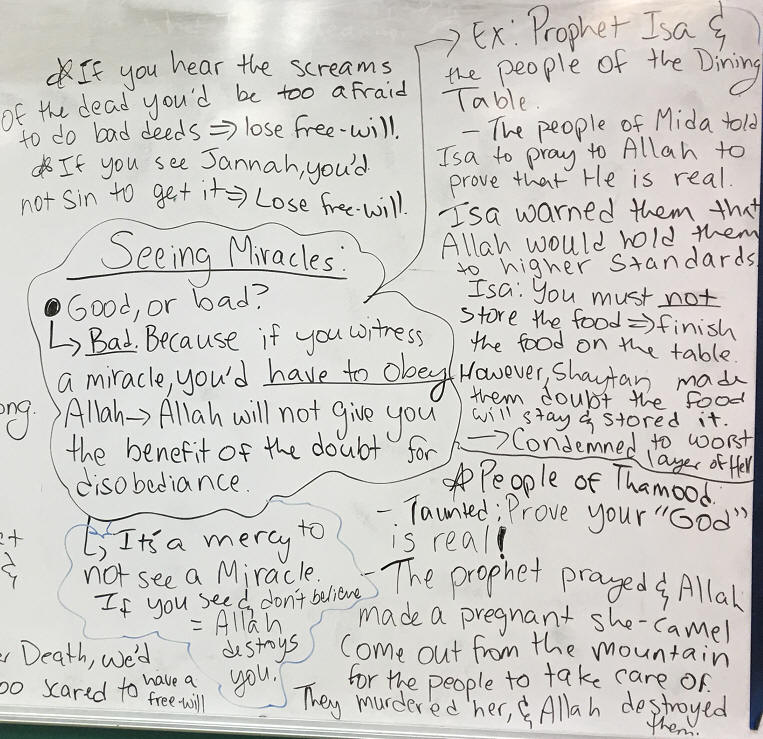 ⁂If you hear the screams
of the dead you'd be too afraid
to do bad deeds ⇒ lose free-will.
⁂If you see Jannah, you'd
not Sin to get it ⇒ Lose free-will.
Seeing Miracles:
● Good, or bad?
↳ Bad. Because if you witness
a miracle, you'd have to obey
Allah → Allah will not give you
the benefit of the doubt for
disobediance.
↳ It's a mercy to
not see a Miracle.
If you see & don't believe
= Allah
destroys
you.
ong.
et
&
r Death, we'd
oo scared to have a
free-will
→ Ex: Prophet Isa &
the people of the Dining
Table.
- The people of Mida told
Isa to pray to Allah to
prove that He is real.
Isa warned them that
Allah would hold them
to higher standards
Isa: You must not
store the food ⇒ finish
the food on the table.
However, Shaytan made
them doubt the food
will stay & stored it.
→ Condemned to worst
layer of Hell
⁂People of Thamood.
- Taunted; Prove your "God"
is real!
- The prophet prayed & Allah
made a pregnant she-camel
come out from the mountain
for the people to take care of.
They murdered her, & Allah destroyed
them.